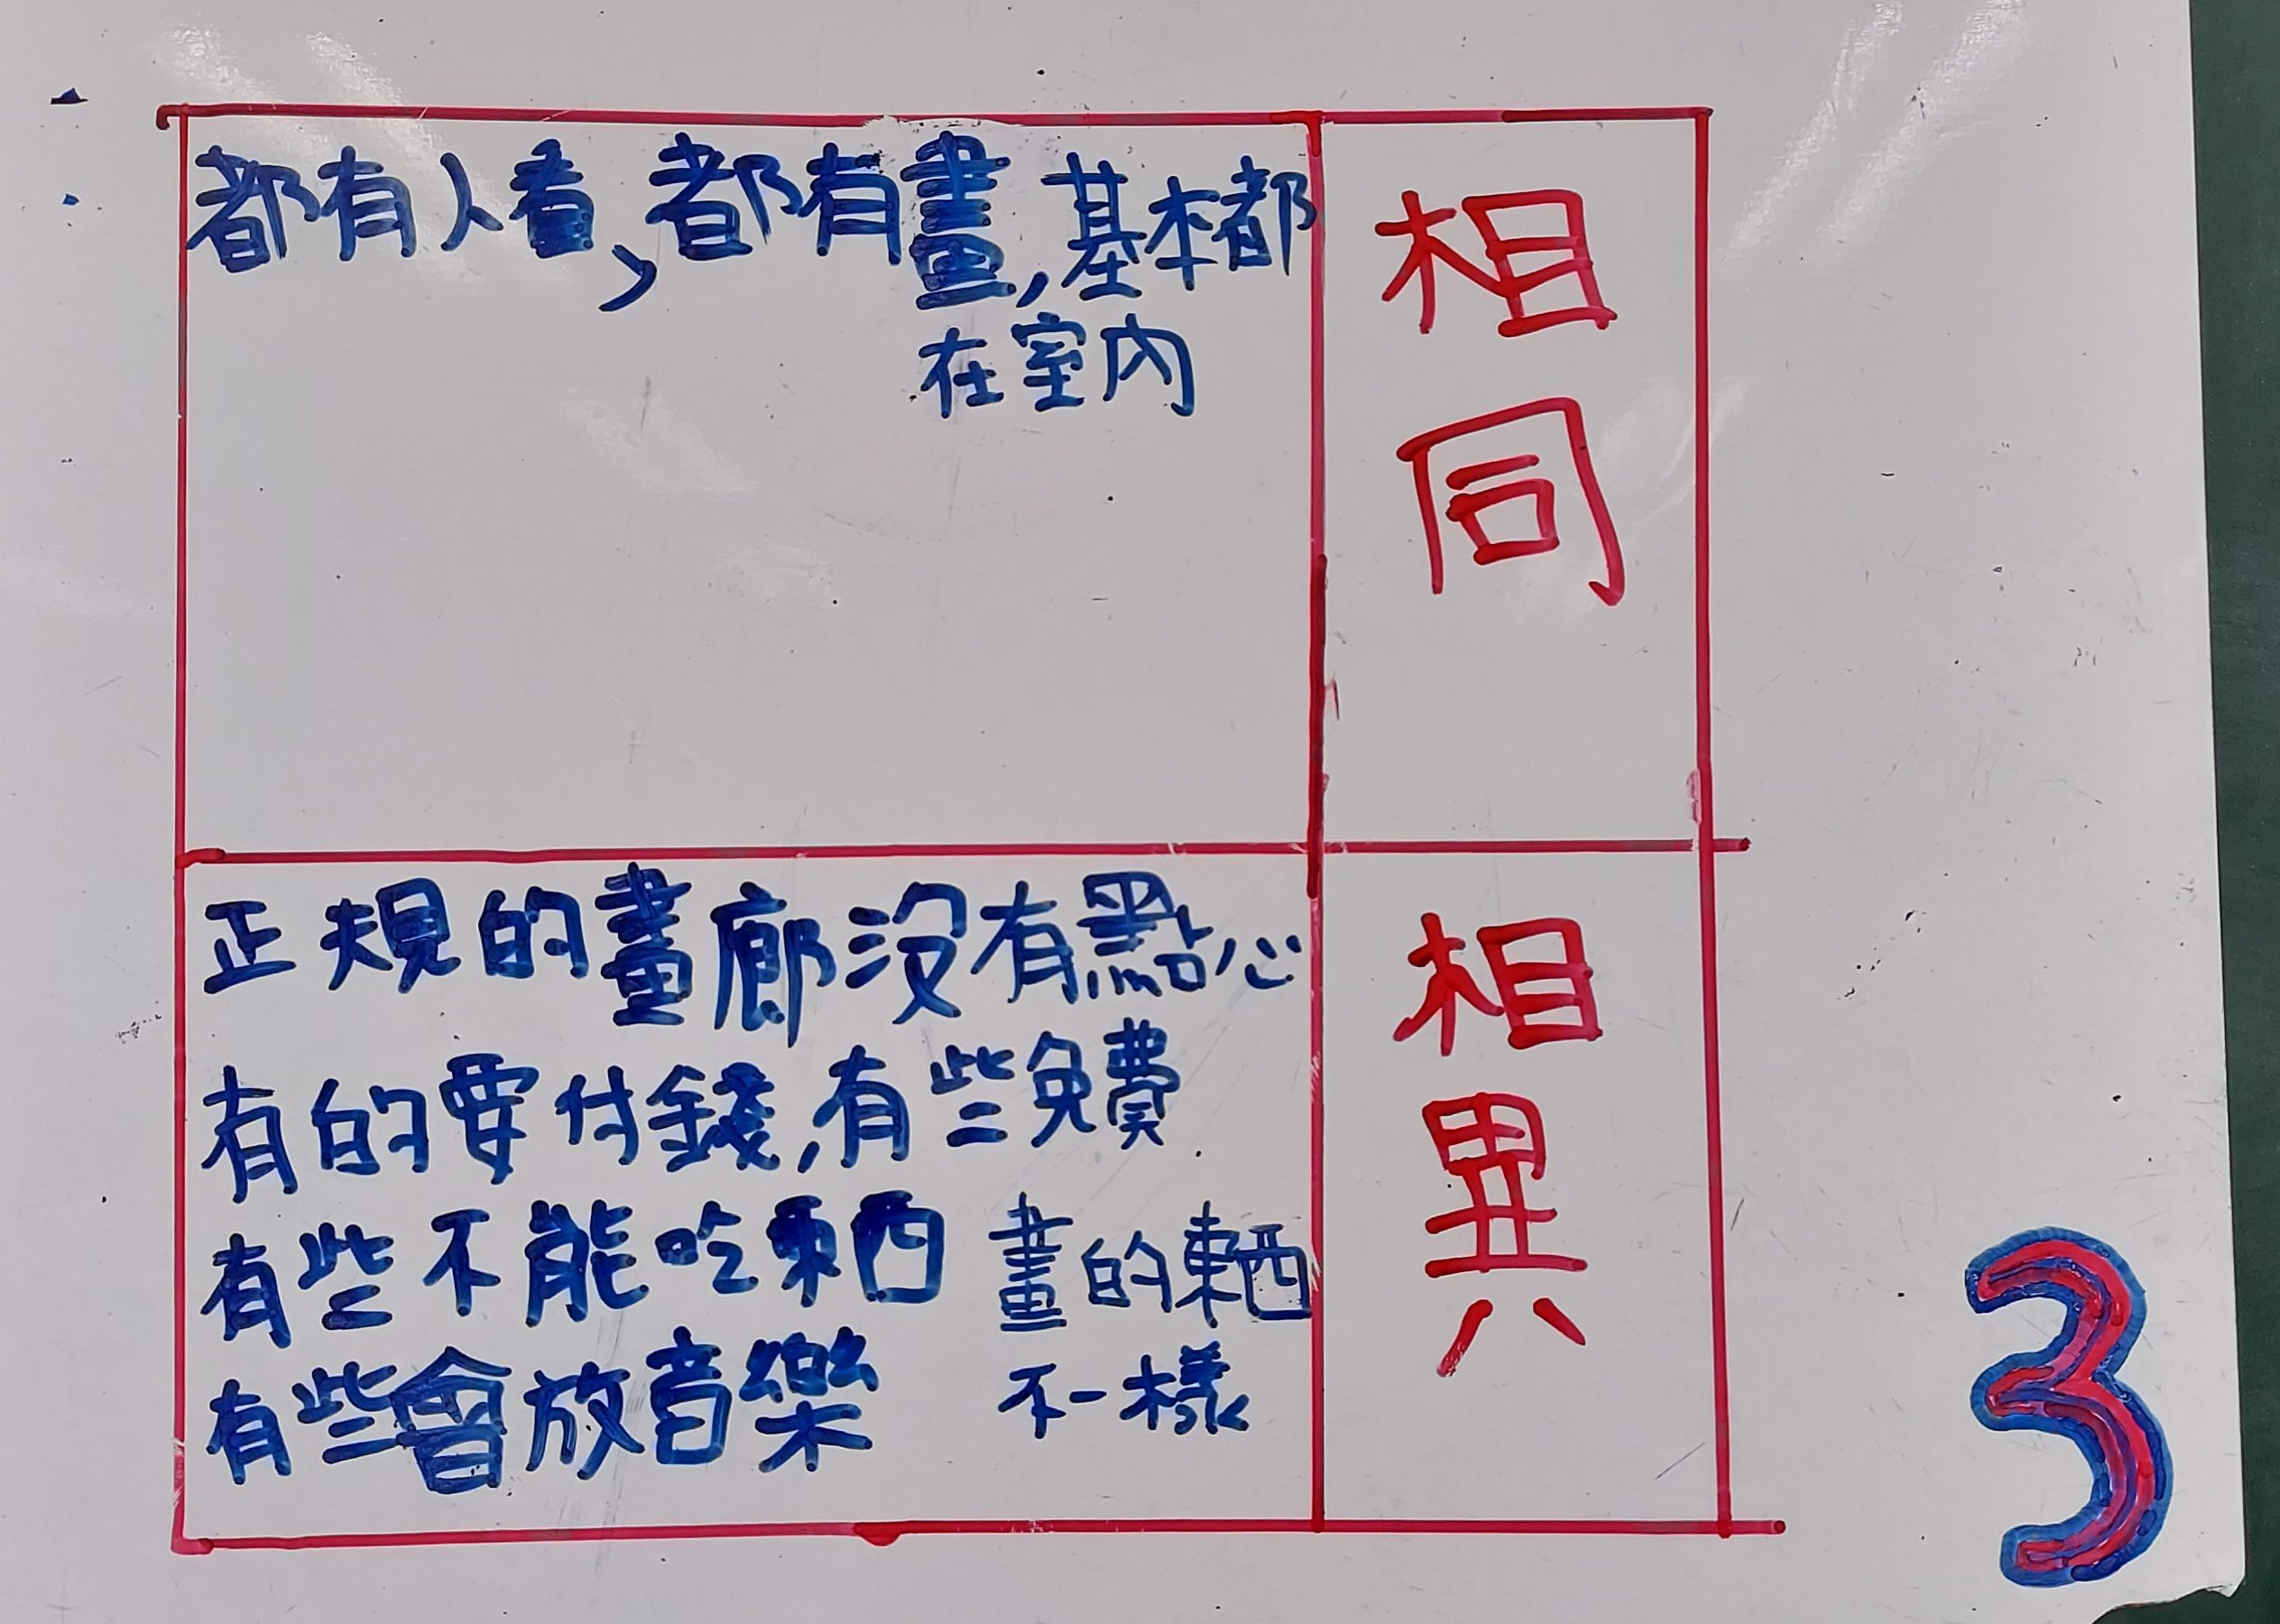 相同
都有人看，都有畫，基本都
在室內
相異
正規的畫廊沒有點心
有的要付錢，有些免費
有些不能吃東西
有些會放音樂
畫的東西
不一樣
3